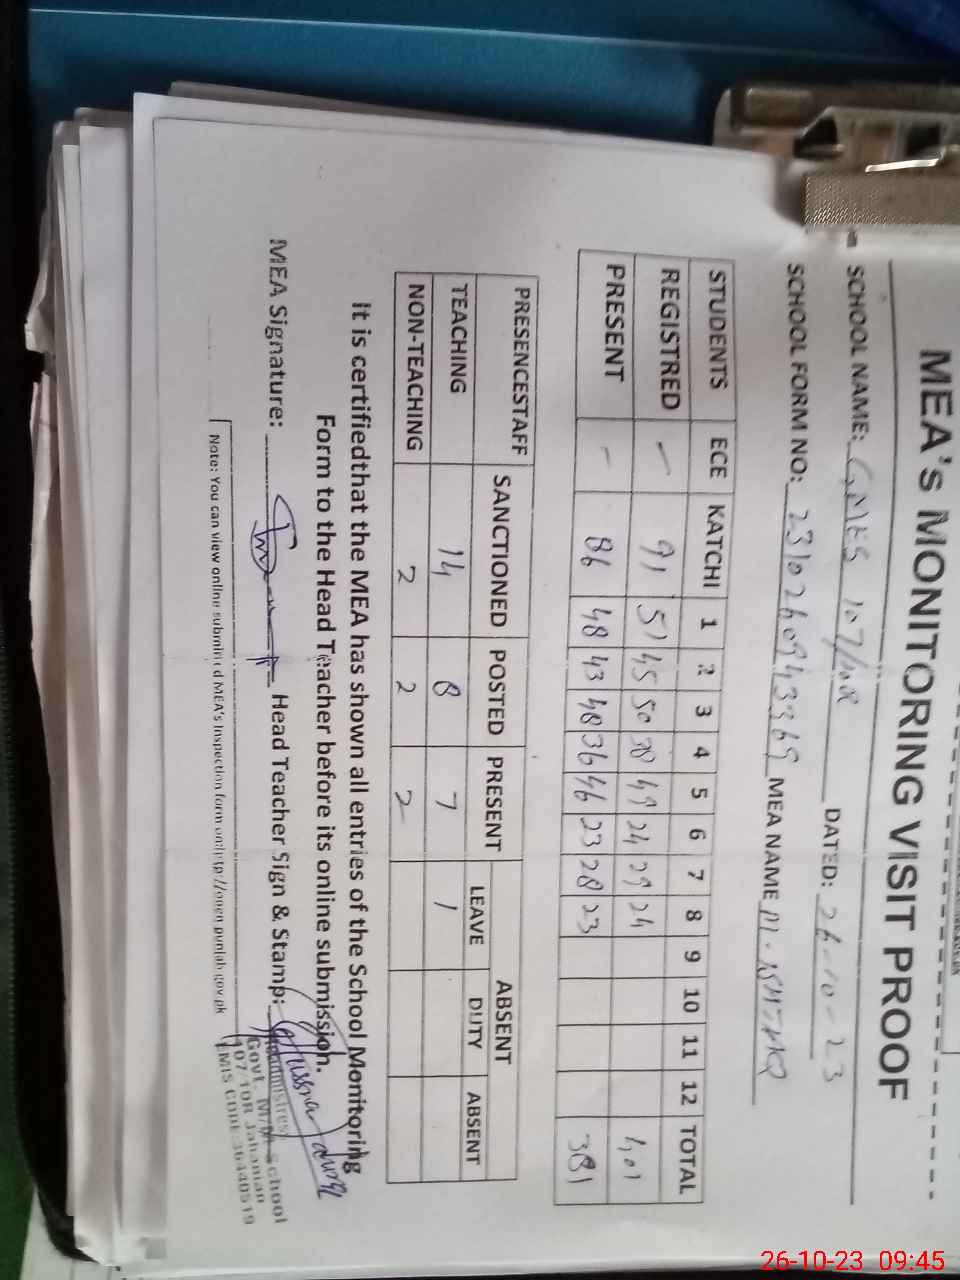 MEA's MONITORING VISIT PROOF
SCHOOL NAME: GMES 107/10R DATED: 26-10-23
SCHOOL FORM NO: 2310260943369 MEA NAME M.
STUDENTS ECE KATCHI 1 2 3 4 5 6 7 8 9 10 11 12 TOTAL
REGISTRED - 91 51 45 50 38 49 24 29 24 401
PRESENT - 86 48 43 48 36 46 23 28 23 381
PRESENCESTAFF SANCTIONED POSTED PRESENT ABSENT
LEAVE DUTY ABSENT
TEACHING 14 8 7 1
NON-TEACHING 2 2 2
It is certifiedthat the MEA has shown all entries of the School Monitoring
Form to the Head Teacher before its online submission.
MEA Signature: Head Teacher Sign & Stamp:
Headmistress
Govt. M/M School
107/10R Jahanian
EMIS CODE 36440519
Note: You can view online submitted MEA's Inspection form on http://open.punjab.gov.pk
26-10-23 09:45